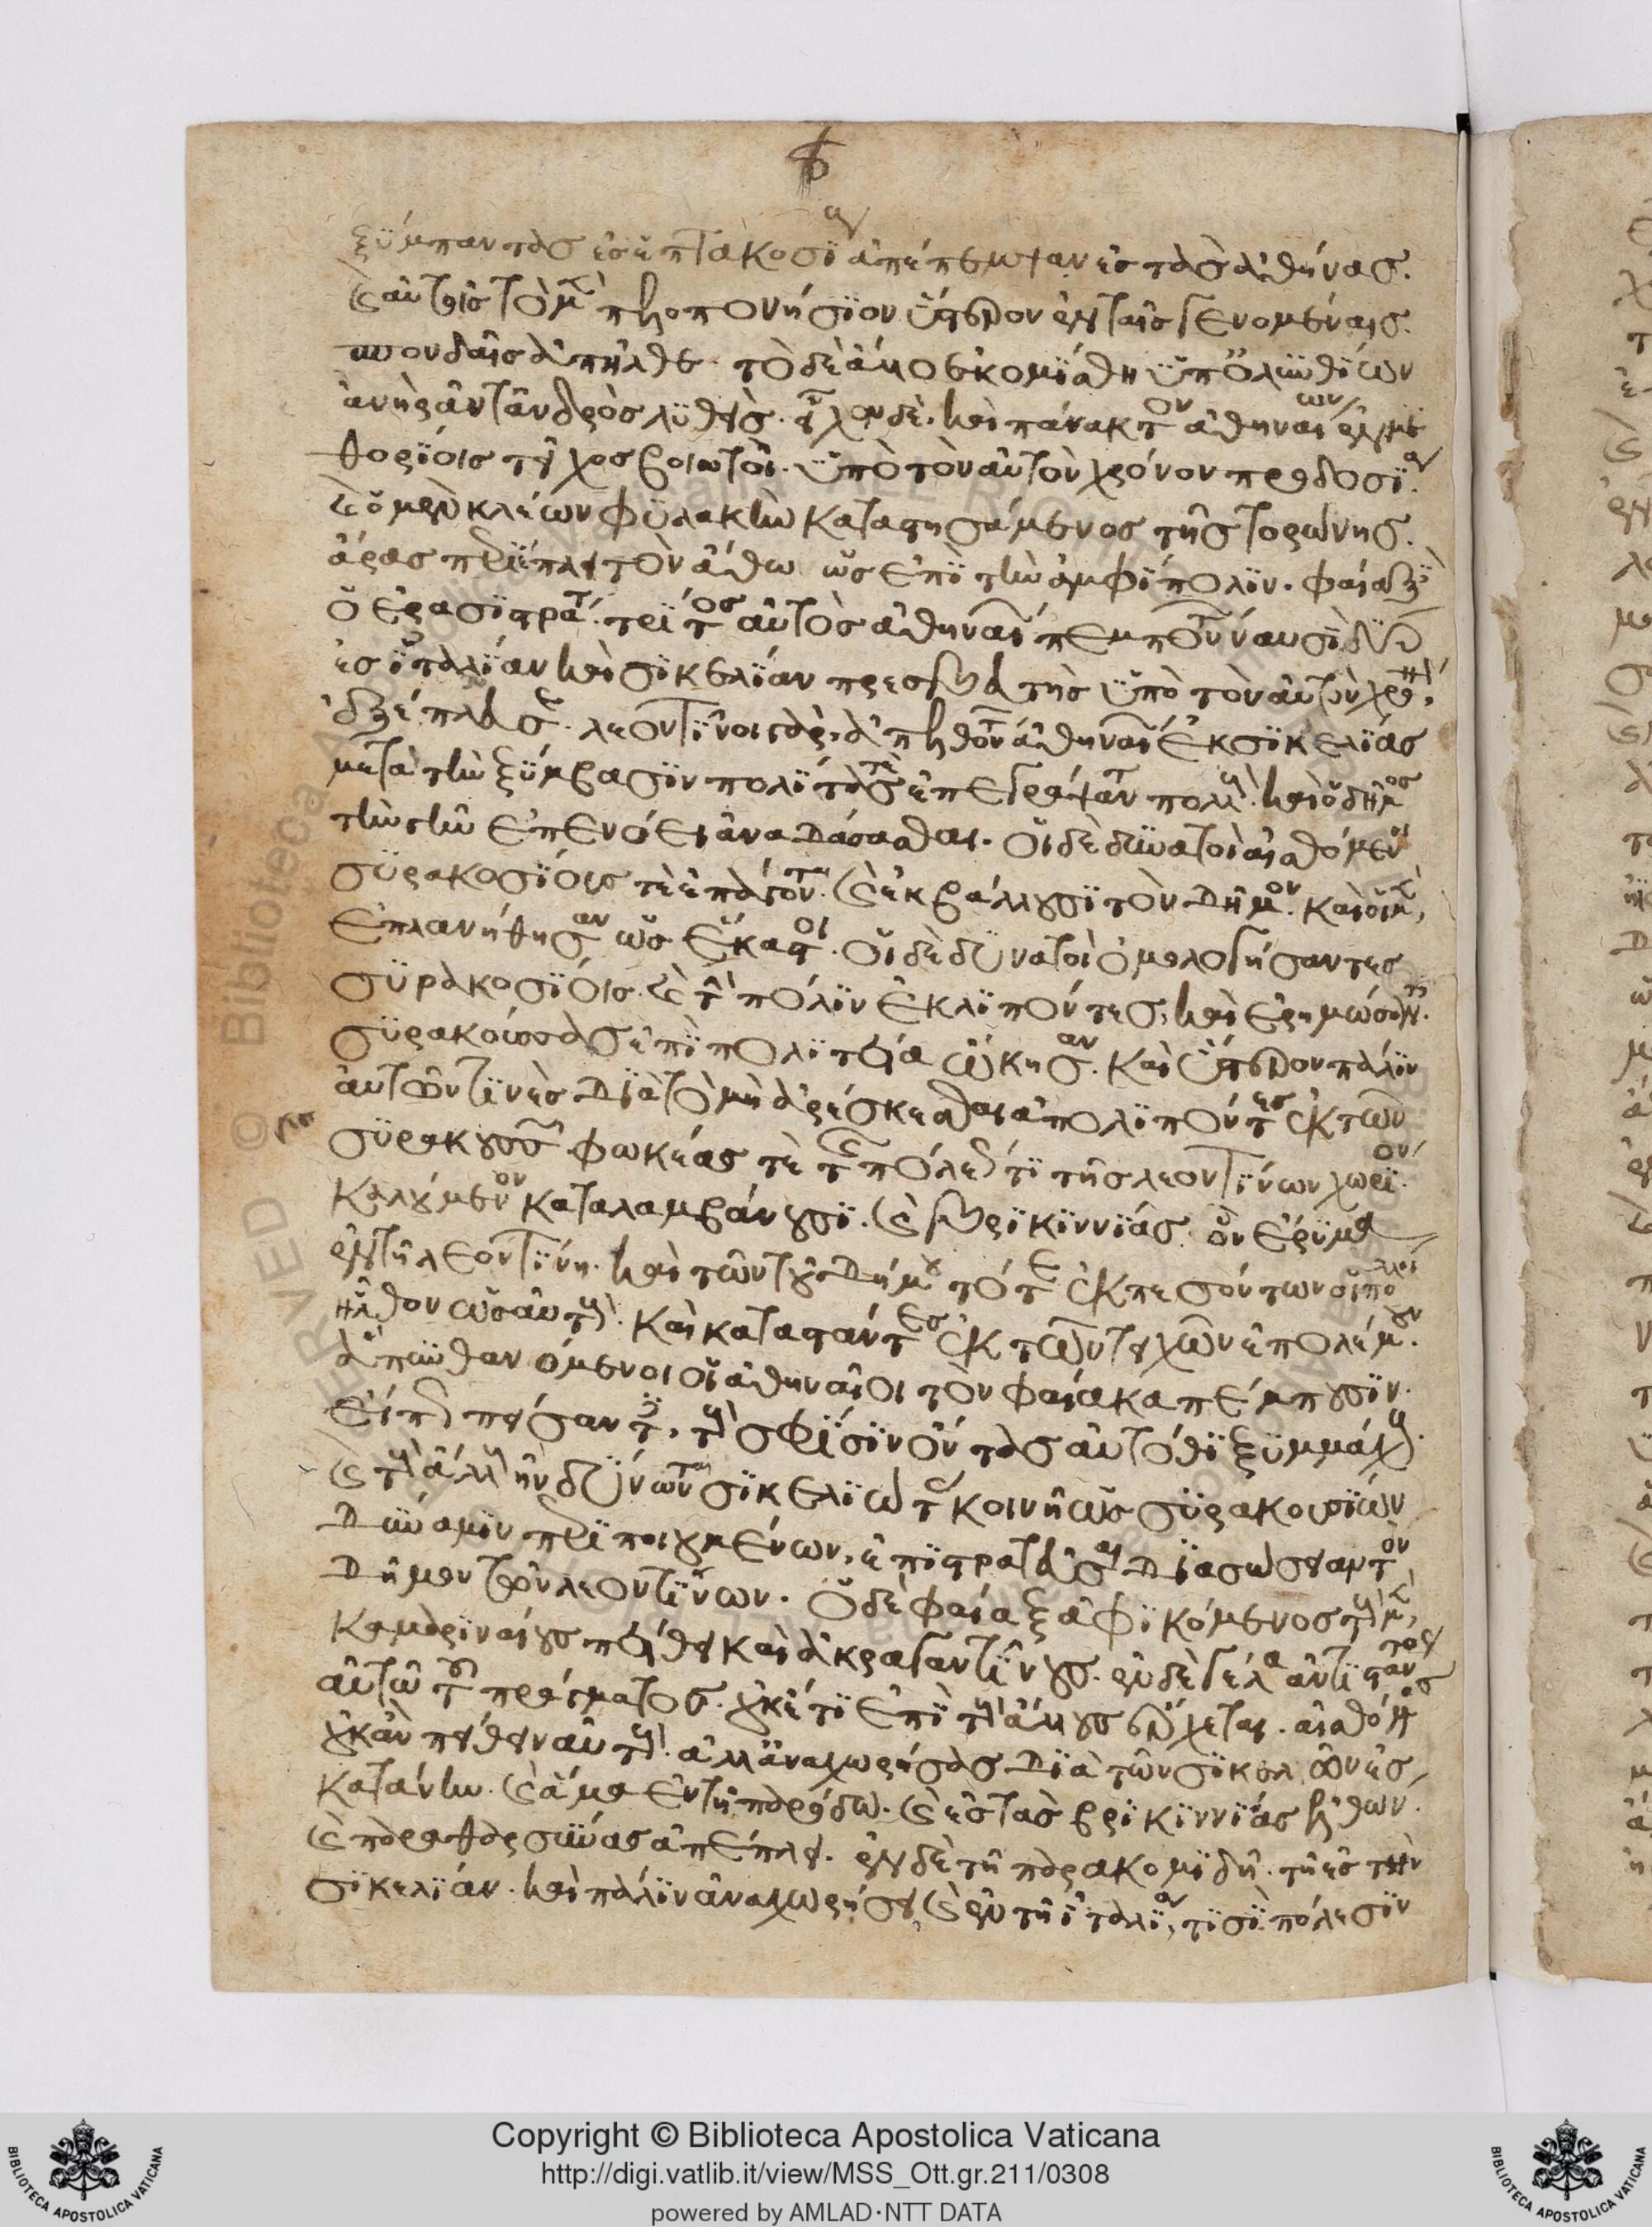 ξύμπαντας ἐς ἑπτακοσί ἀπέπεμψαν ἐς τὰς ἀθήνας.
καὶ αὐτοῖς τὸ μὲν πελοποννήσιον ὕστερον ἐν ταῖς γενομέναις
σπονδαῖς ἀπῆλθε. τὸ δὲ ἄλλο ἐκομίσθη ὑπ' ὀλυνθίων
ἀνὴρ ἀντ' ἀνδρὸς λυθείς. εἷλον δὲ καὶ πάνακτον ἀθηναίων ἐν με
θορίοις τεῖχος βοιωτοί. ὑπὸ τὸν αὐτὸν χρόνον προδοσία.
καὶ ὁ μὲν κλέων φυλακὴν καταστησάμενος τῆς τορώνης.
ἄρας περιέπλει τὸν ἄθω ὡς ἐπὶ τὴν ἀμφίπολιν. φαίαξ
ὁ ἐρασιστράτου τρίτος αὐτὸς ἀθηναίων πεμπόντων ναυσὶ δύο
ἐς ἰταλίαν καὶ σικελίαν πρεσβευτὴς ὑπὸ τὸν αὐτὸν χρόνον
ἐξέπλευσε. λεοντῖνοι γὰρ ἀπελθόντων ἀθηναίων ἐκ σικελίας
μετὰ τὴν ξύμβασιν πολίτας τε ἐπεγράψαντο πολλούς. καὶ ὁ δῆμος
τὴν γῆν ἐπενόει ἀναδάσασθαι. οἱ δὲ δυνατοὶ αἰσθόμενοι
συρακοσίους τε ἐπάγονται. καὶ ἐκβάλλουσι τὸν δῆμον. καὶ οἱ μὲν
ἐπλανήθησαν ὡς ἕκαστοι. οἱ δὲ δυνατοὶ ὁμολογήσαντες
συρακοσίοις. καὶ τὴν πόλιν ἐκλιπόντες, καὶ ἐρημώσαντες.
συρακούσας ἐπὶ πολιτείᾳ ᾤκησαν. καὶ ὕστερον πάλιν
αὐτῶν τινὲς διὰ τὸ μὴ ἀρέσκεσθαι ἀπολιπόντες ἐκ τῶν
συρακουσῶν. φωκέας τε τῆς πόλεώς τι τῆς λεοντίνων χωρίον
καλούμενον καταλαμβάνουσι. καὶ βρικιννίας. ὂν ἔρυμα
ἐν τῇ λεοντίνῃ. καὶ τῶν τοῦ δήμου τότε ἐκπεσόντων οἱ πολλοὶ
ἦλθον ὡς αὐτούς. καὶ καταστάντες ἐκ τῶν τειχῶν ἐπολέμουν.
ἃ πυνθανόμενοι οἱ ἀθηναῖοι τὸν φαίακα πέμπουσιν.
εἴ πως πείσαντες, τοὺς σφίσιν ὄντας αὐτόθι ξυμμάχους.
καὶ τοὺς ἄλλους ἢν δύνωνται σικελιώτας κοινῇ ὡς συρακοσίων
δύναμιν περιποιουμένων, ἐπιστρατεῦσαι διασώσειαν τὸν
δῆμον τῶν λεοντίνων. ὁ δὲ φαίαξ ἀφικόμενος τοὺς μὲν
καμαριναίους πείθει καὶ ἀκραγαντίνους. ἐν δὲ γέλᾳ ἀντιστάντος
αὐτῷ τοῦ πράγματος. οὐκέτι ἐπὶ τοὺς ἄλλους ἔρχεται. αἰσθόμενος
οὐκ ἂν πείθειν αὐτούς. ἀλλ' ἀναχωρήσας διὰ τῶν σικελῶν ἐς
κατάνην. καὶ ἅμα ἐν τῇ παρόδῳ. καὶ ἐς τὰς βρικιννίας ἐλθών.
καὶ παραθαρσύνας ἀπέπλει. ἐν δὲ τῇ παρακομιδῇ. τῇ ἐς τὴν
σικελίαν. καὶ πάλιν ἀναχωρήσει, καὶ ἐν τῇ ἰταλίᾳ, τισὶ πόλεσιν
Copyright © Biblioteca Apostolica Vaticana
http://digi.vatlib.it/view/MSS_Ott.gr.211/0308
powered by AMLAD·NTT DATA